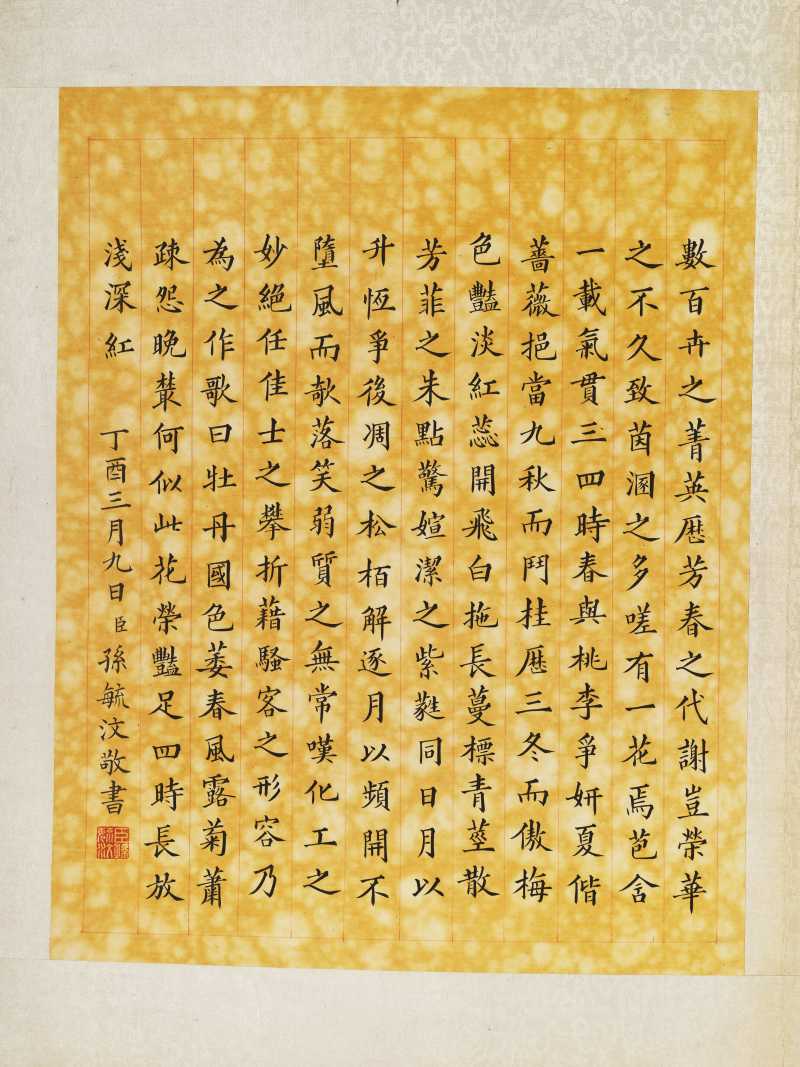 數百卉之菁英歷芳春之代謝豈榮華
之不久致茵溷之多嗟有一花焉苞含
一載氣貫三四時春與桃李爭妍夏偕
薔薇挹當九秋而鬥桂歷三冬而傲梅
色豔淡紅蕊開飛白拖長蔓標青莖散
芳菲之朱點驚媗潔之紫蕤同日月以
升恆爭後凋之松栢解逐月以頻開不
墮風而欹落笑弱質之無常嘆化工之
妙絕任佳士之攀折藉騷客之形容乃
為之作歌曰牡丹國色萎春風露菊蕭
疎怨晚叢何似此花榮豔足四時長放
淺深紅 丁酉三月九日臣孫毓汶敬書